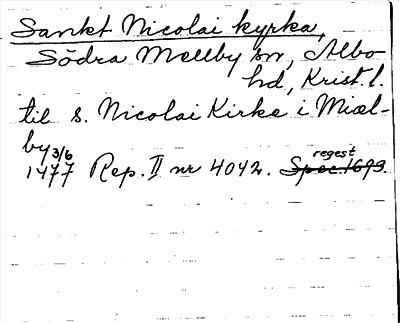 Sankt Nicolai kyrka,
Södra Mellby sn, Albo
hd, Krist l.
til s. Nicolai Kirke i Miæl-
by 3/6
1477 Rep. II nr 4042. Spec 1693. regest